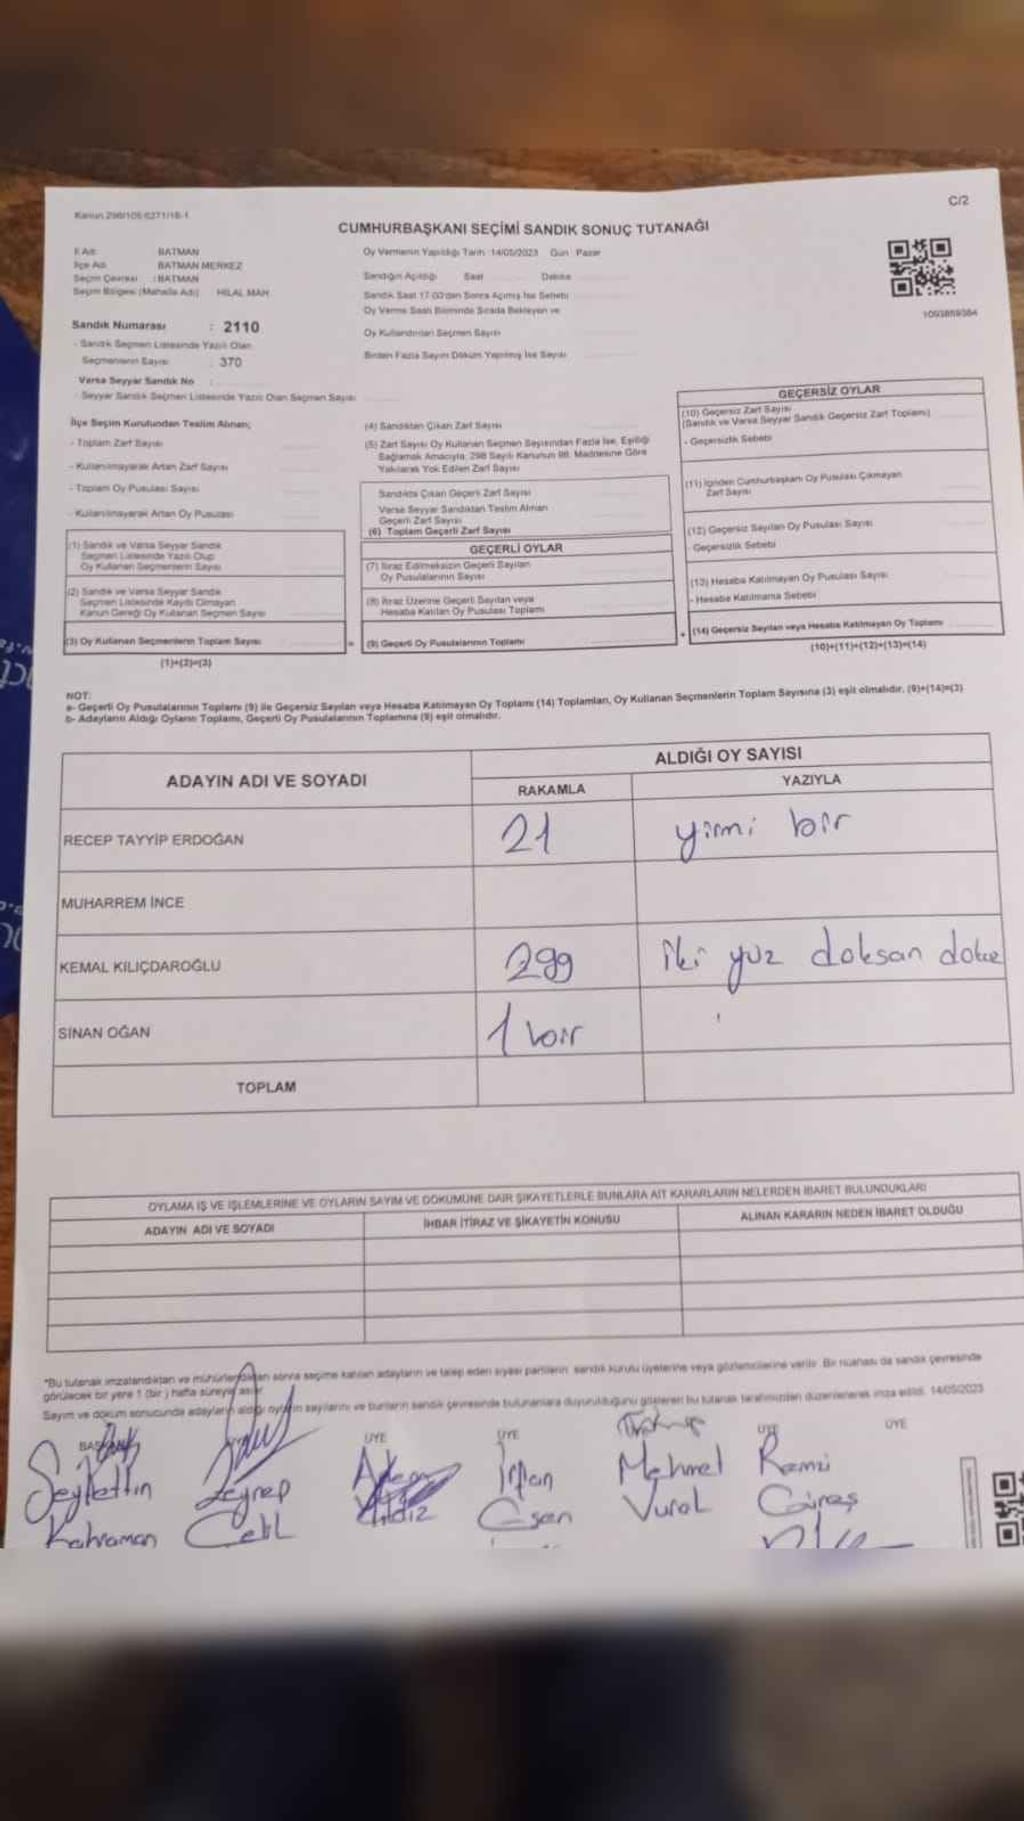 Kanun 298/105 6271/18-1
C/2
CUMHURBAŞKANI SEÇİMİ SANDIK SONUÇ TUTANAĞI
İl Adı BATMAN
İlçe Adı BATMAN MERKEZ
Seçim Çevresi : BATMAN
Seçim Bölgesi (Mahalle Adı) HİLAL MAH
Oy Vermenin Yapıldığı Tarih :14/05/2023 Gün : Pazar
Sandığın Açıldığı Saat Dakika
Sandık Saat 17:00'den Sonra Açılmış İse Sebebi
Oy Verme Saati Bitiminde Sırada Bekleyen ve
Oy Kullandırılan Seçmen Sayısı
Birden Fazla Sayım Döküm Yapılmış İse Sayısı
1093859384
Sandık Numarası : 2110
- Sandık Seçmen Listesinde Yazılı Olan
Seçmenlerin Sayısı : 370
Varsa Seyyar Sandık No :
- Seyyar Sandık Seçmen Listesinde Yazılı Olan Seçmen Sayısı
İlçe Seçim Kurulundan Teslim Alınan;
- Toplam Zarf Sayısı
- Kullanılmayarak Artan Zarf Sayısı
- Toplam Oy Pusulası Sayısı
- Kullanılmayarak Artan Oy Pusulası
(1) Sandık ve Varsa Seyyar Sandık
Seçmen Listesinde Yazılı Olup
Oy Kullanan Seçmenlerin Sayısı
(2) Sandık ve Varsa Seyyar Sandık
Seçmen Listesinde Kayıtlı Olmayan
Kanun Gereği Oy Kullanan Seçmen Sayısı
(3) Oy Kullanan Seçmenlerin Toplam Sayısı
(1)+(2)=(3)
(4) Sandıktan Çıkan Zarf Sayısı
(5) Zarf Sayısı Oy Kullanan Seçmen Sayısından Fazla İse, Eşitliği
Sağlamak Amacıyla, 298 Sayılı Kanunun 98. Maddesine Göre
Yakılarak Yok Edilen Zarf Sayısı
Sandıkta Çıkan Geçerli Zarf Sayısı
Varsa Seyyar Sandıktan Teslim Alınan
Geçerli Zarf Sayısı
(6) Toplam Geçerli Zarf Sayısı
GEÇERLİ OYLAR
(7) İtiraz Edilmeksizin Geçerli Sayılan
Oy Pusulalarının Sayısı
(8) İtiraz Üzerine Geçerli Sayılan veya
Hesaba Katılan Oy Pusulası Toplamı
= (9) Geçerli Oy Pusulalarının Toplamı
GEÇERSİZ OYLAR
(10) Geçersiz Zarf Sayısı
(Sandık ve Varsa Seyyar Sandık Geçersiz Zarf Toplamı)
- Geçersizlik Sebebi
(11) İçinden Cumhurbaşkanı Oy Pusulası Çıkmayan
Zarf Sayısı
(12) Geçersiz Sayılan Oy Pusulası Sayısı
- Geçersizlik Sebebi
(13) Hesaba Katılmayan Oy Pusulası Sayısı
- Hesaba Katılmama Sebebi
+ (14) Geçersiz Sayılan veya Hesaba Katılmayan Oy Toplamı
(10)+(11)+(12)+(13)=(14)
NOT:
a- Geçerli Oy Pusulalarının Toplamı (9) ile Geçersiz Sayılan veya Hesaba Katılmayan Oy Toplamı (14) Toplamları, Oy Kullanan Seçmenlerin Toplam Sayısına (3) eşit olmalıdır. (9)+(14)=(3)
b- Adayların Aldığı Oyların Toplamı, Geçerli Oy Pusulalarının Toplamına (9) eşit olmalıdır.
ADAYIN ADI VE SOYADI
ALDIĞI OY SAYISI
RAKAMLA
YAZIYLA
RECEP TAYYİP ERDOĞAN 21 yirmi bir
MUHARREM İNCE
KEMAL KILIÇDAROĞLU 299 iki yuz doksan dokuz
SİNAN OĞAN 1 bir
TOPLAM
OYLAMA İŞ VE İŞLEMLERİNE VE OYLARIN SAYIM VE DÖKÜMÜNE DAİR ŞİKAYETLERLE BUNLARA AİT KARARLARIN NELERDEN İBARET BULUNDUKLARI
ADAYIN ADI VE SOYADI
İHBAR İTİRAZ VE ŞİKAYETİN KONUSU
ALINAN KARARIN NEDEN İBARET OLDUĞU
*Bu tutanak imzalandıktan ve mühürlendikten sonra seçime katılan adayların ve talep eden siyasi partilerin sandık kurulu üyelerine veya gözlemcilerine verilir. Bir nüshası da sandık çevresinde
görülecek bir yere 1 (bir) hafta süreyle asılır.
Sayım ve döküm sonucunda adayların aldığı oyların sayılarını ve bunların sandık çevresinde bulunanlara duyurulduğunu gösteren bu tutanak tarafımızdan düzenlenerek imza edildi. 14/05/2023
BAŞKAN
ÜYE
ÜYE
ÜYE
ÜYE
Seyfettin
Kahraman
Zeynep
Celil
Adem
Yıldız
İrfan
Esen
Mehmet
Vural
Remzi
Güneş